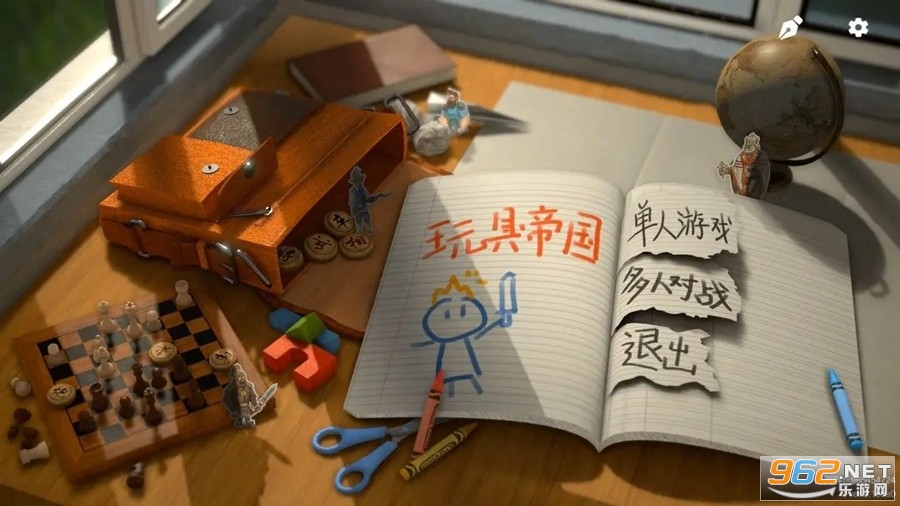 玩具帝国
单人游戏
多人对战
退出
962.NET
乐游网